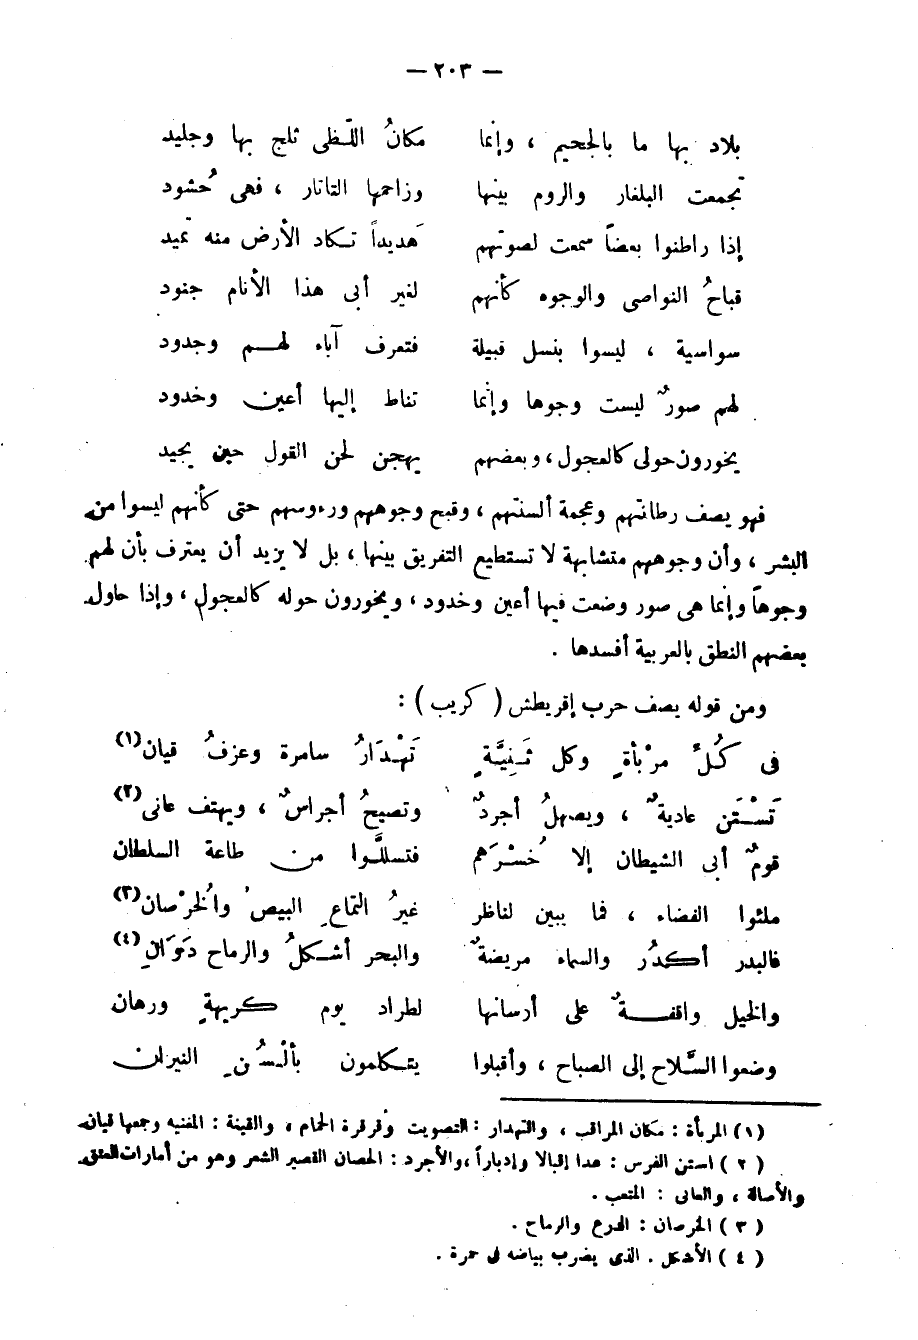 — ٢٠٣ —
بلاد بها ما بالجحيم ، وإنما مكانُ اللَّظى ثلج بها وجليد
تجمعت البلغار والروم بينها وزاحمها التاتار ، فهى حُشود
إذا راطنوا بعضاً سمعت لصوتهم هَديداً تكاد الأرض منه تميد
قباحُ النواصى والوجوه كأنهم لغير أبى هذا الأنام جنود
سواسية ، ليسوا بنسل قبيلة فتعرف آباء لهم وجدود
لهم صورٌ ليست وجوها وإنما تناط إليها أعين وخدود
يخورون حولى كالعجول ، وبعضهم يهجن لحن القول حين يجيد
فهو يصف رطانتهم وعجمة ألسنتهم ، وقبح وجوههم ورءوسهم حتى كأنهم ليسوا من
البشر ، وأن وجوههم متشابهة لا تستطيع التفريق بينها ، بل لا يزيد أن يعترف بأن لهم
وجوهاً وإنما هى صور وضعت فيها أعين وخدود ، ويخورون حوله كالعجول ، وإذا حاول
بعضهم النطق بالعربية أفسدها .
ومن قوله يصف حرب إقريطش ( كريب ) :
فى كُلِّ مرْبأةٍ وكل ثَنِيَّةٍ تَهْدَارُ سامرة وعزفُ قيان(١)
تَسْتَن عاديةٌ ، ويصهلُ أجردٌ وتصيحُ أجراسٌ ، ويهتف عانى(٢)
قومٌ أبى الشيطان إلا خُسْرَهم فتسللَّوا من طاعة السلطان
ملئوا الفضاء ، فما يبين لناظر غيرُ التماعِ البيضِ والخُرْصان(٣)
فالبدر أكدرُ والسماء مريضةٌ والبحر أشكلُ والرماح دَوَانِ(٤)
والخيل واقفةٌ على أرسانها لطراد يوم كريهةٍ ورهان
وضعوا السِّلاح إلى الصباح ، وأقبلوا يتكلمون بألْسُنِ النيران
(١) المربأة : مكان المراقب ، والتهدار : التصويت وقرقرة الحمام ، والقينة : المغنيه وجمعها قيان
( ٢ ) استن الفرس : عدا إقبالا وإدباراً ،والأجرد : الحصان القصير الشعر وهو من أمارات العتق
والأصالة ، والعانى : المتعب .
( ٣ ) الخرصان : الدرع والرماح .
( ٤ ) الأشكل . الذى يضرب بياضه فى حمرة .